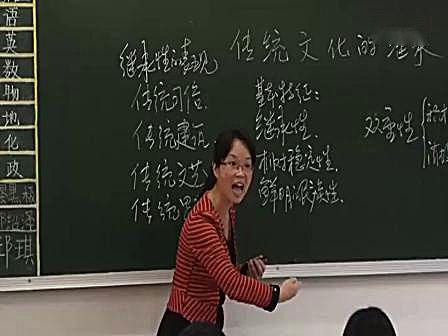 语
英
数
物
地
化
政
邱琪
传统文化的继承
继承性的表现
传统习俗
传统建筑
传统文艺
传统思
基本特征:
继承性.
相对稳定性.
鲜明民族性.
双重性